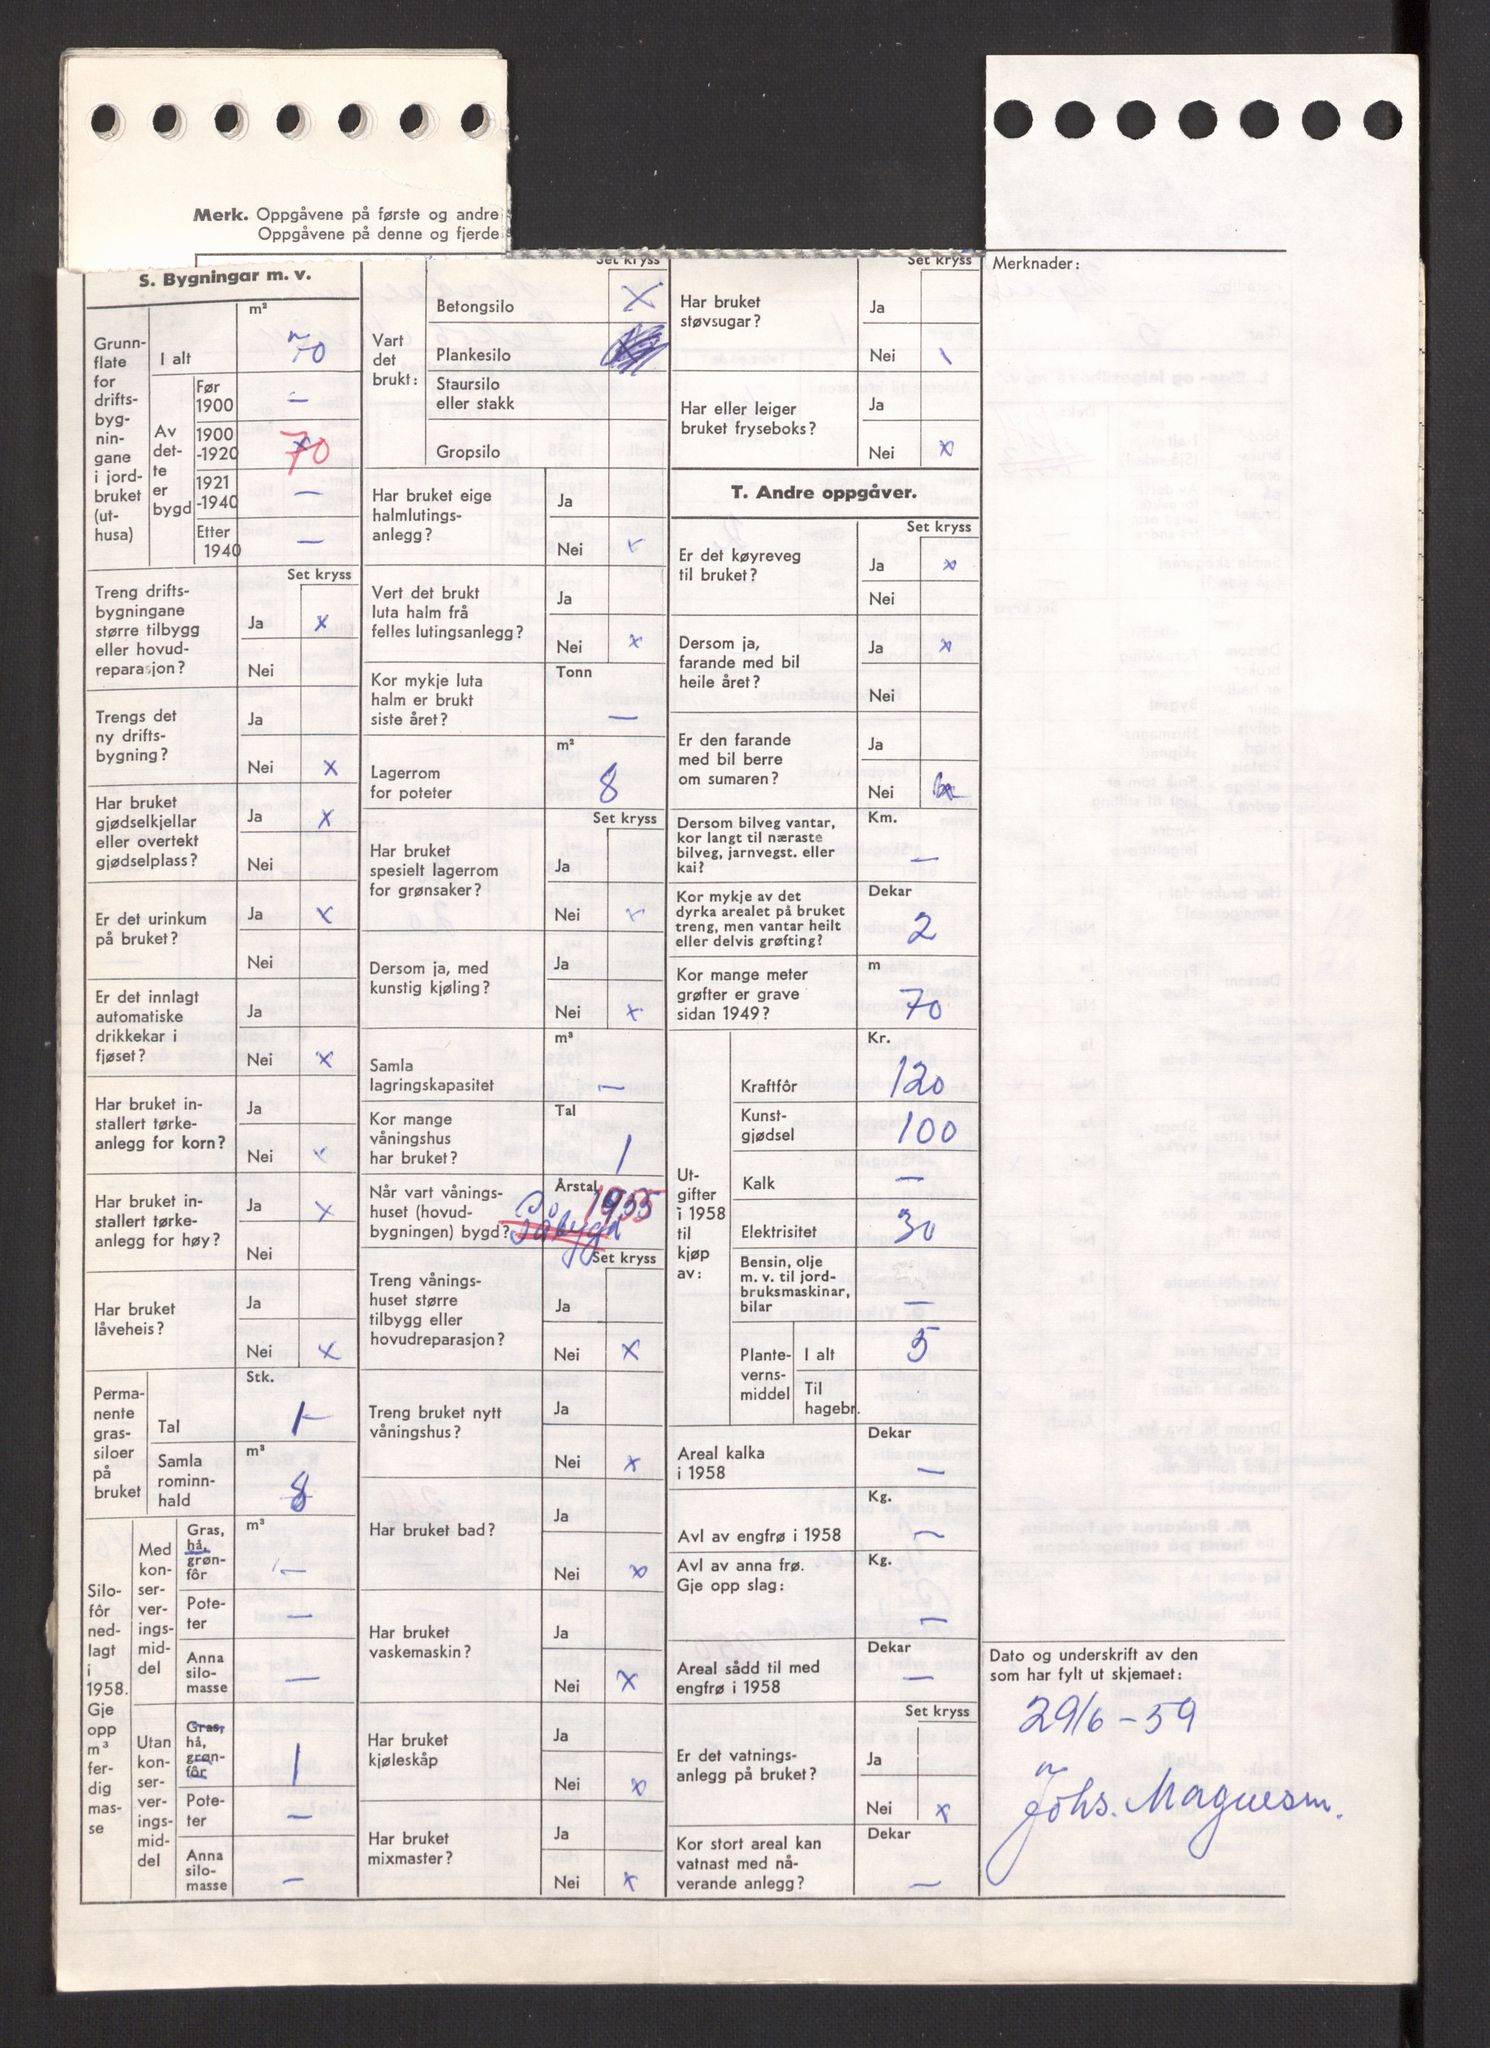 Merk. Oppgåvene på første og andre
Oppgåvene på denne og fjerde
S. Bygningar m. v.
m²
Grunn-
flate
for
drifts-
byg-
nin-
gane
i jord-
bruket
(ut-
husa)
I alt 70
Av
det-
te
er
bygd
Før
1900 —
1900
-1920 x 70
1921
-1940 —
Etter
1940 —
Set kryss
Treng drifts-
bygningane
større tilbygg
eller hovud-
reparasjon?
Ja x
Nei
Trengs det
ny drifts-
bygning?
Ja
Nei x
Har bruket
gjødselkjellar
eller overtekt
gjødselplass?
Ja x
Nei
Er det urinkum
på bruket?
Ja x
Nei
Er det innlagt
automatiske
drikkekar i
fjøset?
Ja
Nei x
Har bruket in-
stallert tørke-
anlegg for korn?
Ja
Nei x
Har bruket in-
stallert tørke-
anlegg for høy?
Ja x
Nei
Har bruket
låveheis?
Ja
Nei x
Perma-
nente
gras-
siloer
på
bruket
Stk.
Tal 1
Samla
rominn-
hald
m³
8
Silo-
fôr
ned-
lagt
i
1958.
Gje
opp
m³
fer-
dig
mas-
se
Med
kon-
ser-
ver-
ings-
mid-
del
m³
Gras,
hå,
grøn-
fôr —
Pote-
ter —
Anna
silo-
masse —
Utan
kon-
ser-
ver-
ings-
mid-
del
Gras,
hå,
grøn-
fôr 1
Pote-
ter —
Anna
silo-
masse —
Set kryss
Vart
det
brukt:
Betongsilo X
Plankesilo
Staursilo
eller stakk
Gropsilo
Har bruket eige
halmlutings-
anlegg?
Ja
Nei x
Vert det brukt
luta halm frå
felles lutingsanlegg?
Ja
Nei x
Kor mykje luta
halm er brukt
siste året?
Tonn
—
Lagerrom
for poteter
m²
8
Set kryss
Har bruket
spesielt lagerrom
for grønsaker?
Ja
Nei x
Dersom ja, med
kunstig kjøling?
Ja
Nei x
Samla
lagringskapasitet
m³
—
Kor mange
våningshus
har bruket?
Tal
1
Når vart vånings-
huset (hovud-
bygningen) bygd?
Årstal
1955
Set kryss
Treng vånings-
huset større
tilbygg eller
hovudreparasjon?
Ja
Nei x
Treng bruket nytt
våningshus?
Ja
Nei x
Har bruket bad?
Ja
Nei x
Har bruket
vaskemaskin?
Ja
Nei x
Har bruket
kjøleskåp
Ja
Nei x
Har bruket
mixmaster?
Ja
Nei x
Set kryss
Har bruket
støvsugar?
Ja
Nei \
Har eller leiger
bruket fryseboks?
Ja
Nei x
T. Andre oppgåver.
Set kryss
Er det køyreveg
til bruket?
Ja x
Nei
Dersom ja,
farande med bil
heile året?
Ja x
Nei
Er den farande
med bil berre
om sumaren?
Ja
Nei x
Dersom bilveg vantar,
kor langt til næraste
bilveg, jarnvegst. eller
kai?
Km.
—
Kor mykje av det
dyrka arealet på bruket
treng, men vantar heilt
eller delvis grøfting?
Dekar
2
Kor mange meter
grøfter er grave
sidan 1949?
m
70
Ut-
gifter
i 1958
til
kjøp
av:
Kr.
Kraftfôr 120
Kunst-
gjødsel 100
Kalk —
Elektrisitet 30
Bensin, olje
m. v. til jord-
bruksmaskinar,
bilar —
Plante-
verns-
middel
I alt 5
Til
hagebr.
Areal kalka
i 1958
Dekar
—
Avl av engfrø i 1958
Kg.
—
Avl av anna frø.
Gje opp slag:
Kg.
—
Areal sådd til med
engfrø i 1958
Dekar
—
Set kryss
Er det vatnings-
anlegg på bruket?
Ja
Nei x
Kor stort areal kan
vatnast med nå-
verande anlegg?
Dekar
—
Merknader:
Dato og underskrift av den
som har fylt ut skjemaet:
29/6-59
Johs. Magnesm.